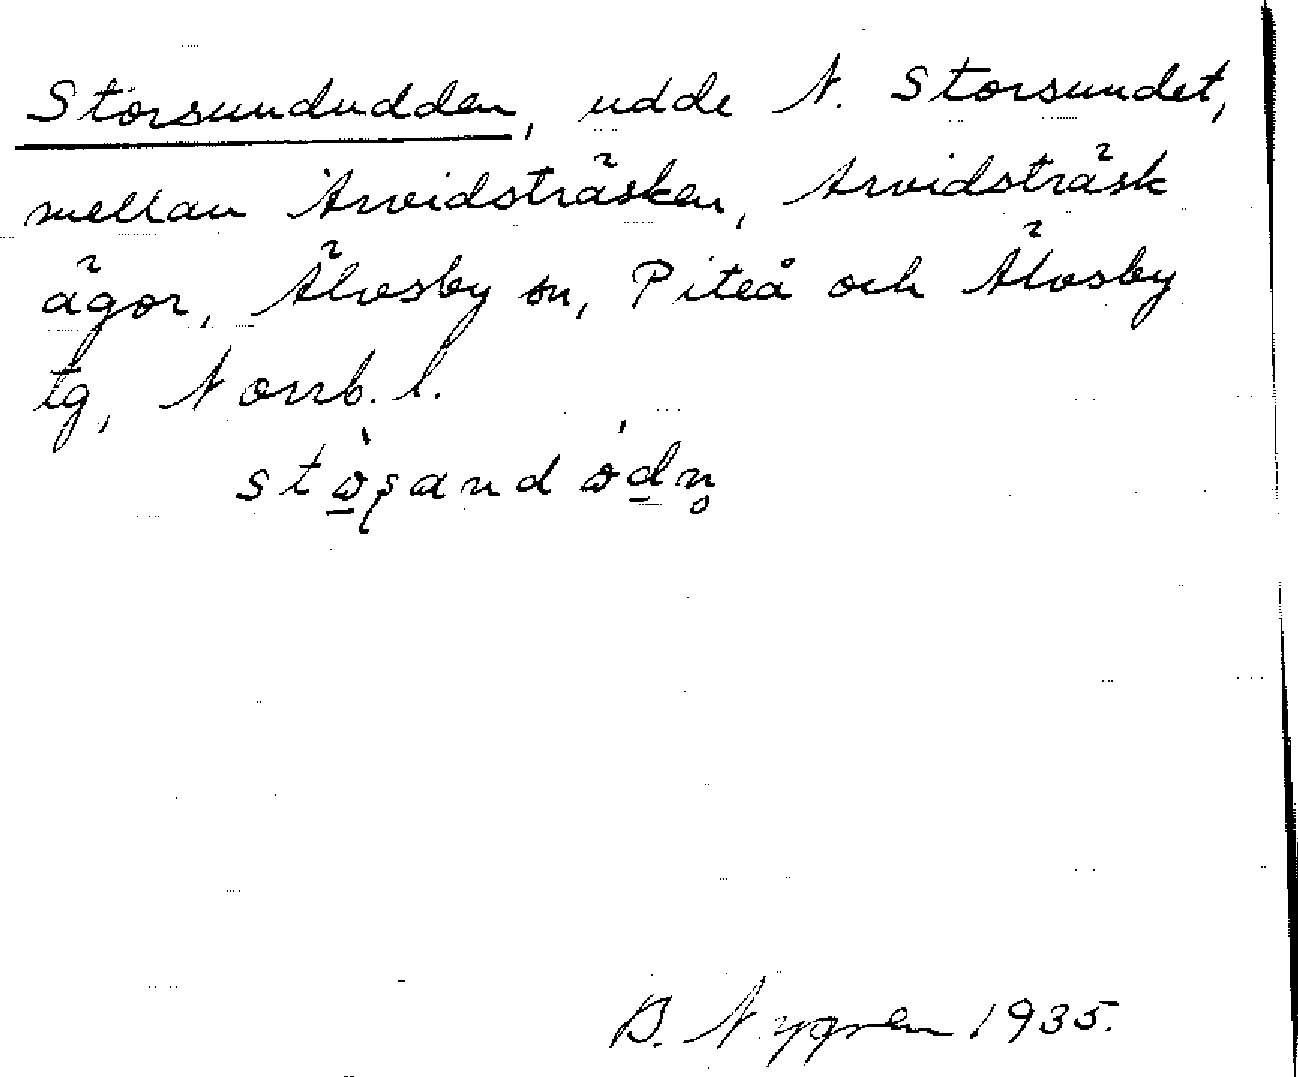 Storsundudden, udde N. Storsundet,
mellan Arvidsträsken, Arvidsträsk
ägor, Älvsby sn, Piteå och Älvsby
tg, Norrb. l.
B. Nygren 1935.